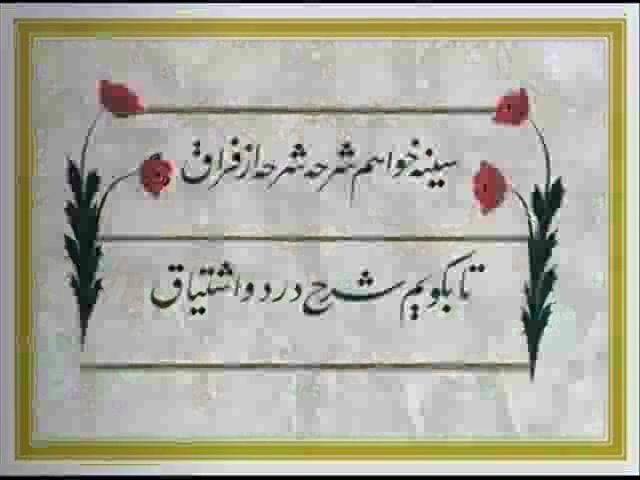 سینه خواهم شرحه شرحه از فراق
تا بگویم شرح درد و اشتیاق